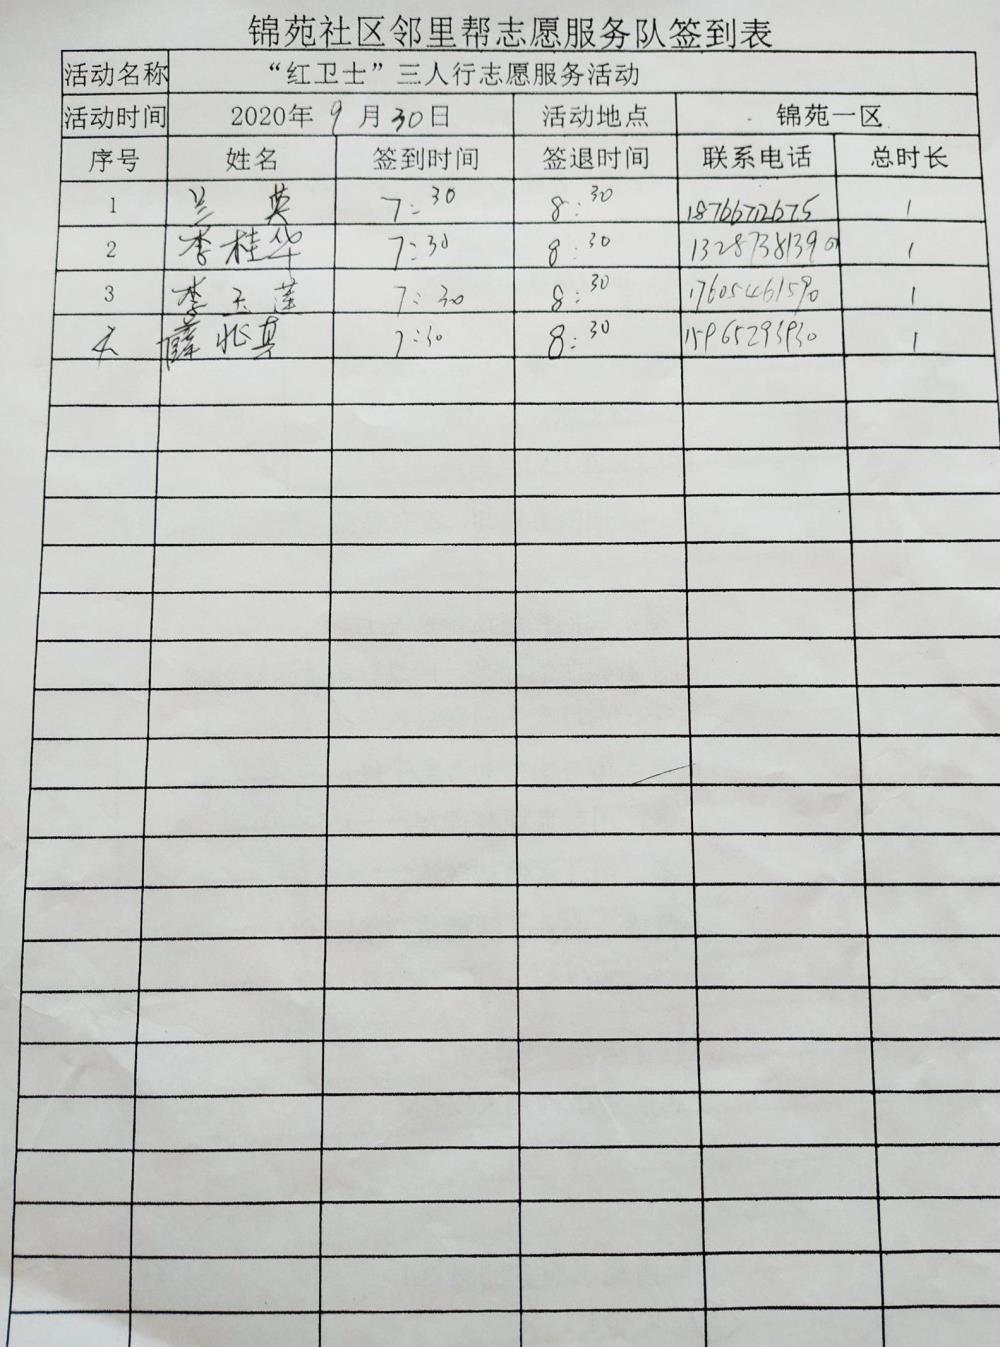 锦苑社区邻里帮志愿服务队签到表
活动名称 “红卫士”三人行志愿服务活动
活动时间 2020年 9 月 30日 活动地点 锦苑一区
序号 姓名 签到时间 签退时间 联系电话 总时长
1 兰 英 7:30 8:30 18766712675 1
2 李桂华 7:30 8:30 1
3 李玉莲 7:30 8:30 17605461590 1
薛兆其 7:30 8:30 1